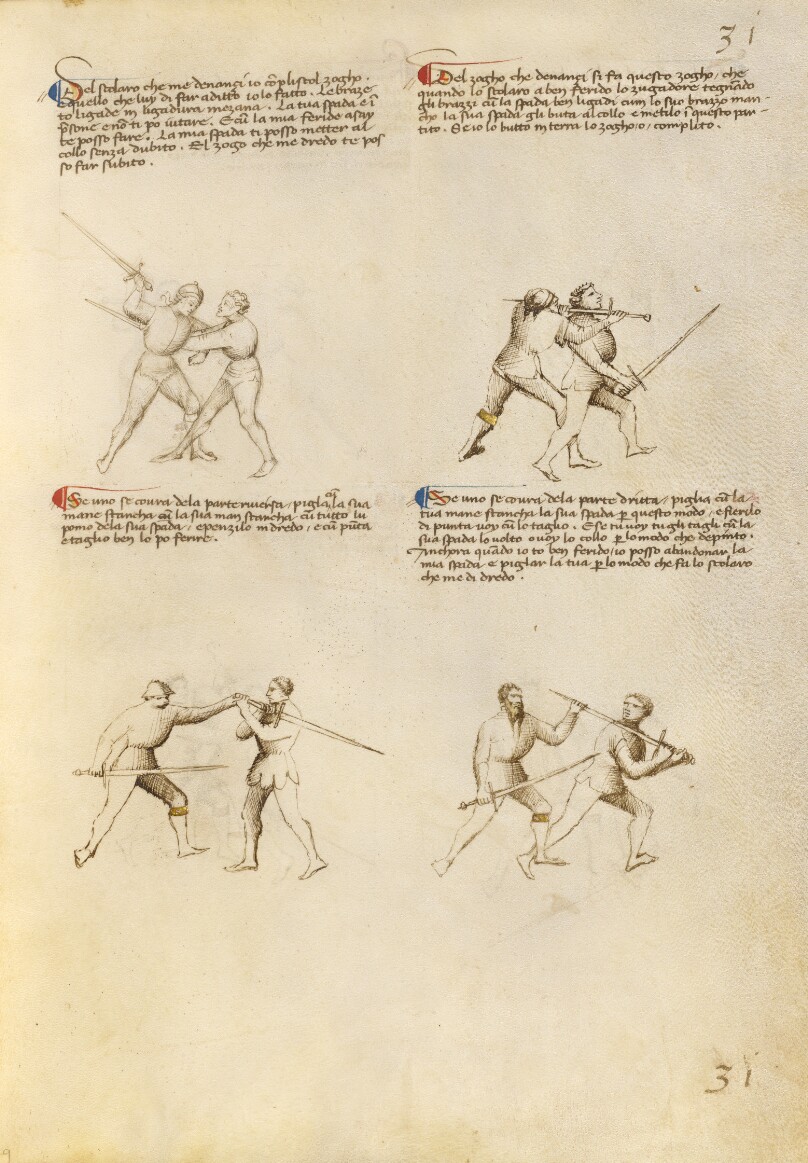 31
Del scolaro che me denançi io cōplisco l zogho.
E quello che luy di far a ditto io lo fatto. Le braze
to ligade in ligadura mezana. La tua spada e ī
p̄sone e nō ti po iutare. E cū la mia feride asay
te posso fare. La mia spada ti posso metter al
collo senza dubito. El zogo che me dredo te pos
so far subito.
Del zogho che denançi si fa questo zogho, che
quando lo scolaro a ben ferido lo zugadore tegnādo
gli brazzi cū la spada ben ligadi cum lo suo brazzo man-
cho la sua spada gli buta al collo e metilo ī questo par-
tito. Se io lo butto in terra lo zogho /o/ complito.
Se uno se covra dela parte riversa, pigla la sua
mane stancha cū la sua man stancha cū tutto lu
pomo dela sua spada, e penzilo in dredo, e cū pūta
e taglio ben lo po ferire.
Se uno se covra dela parte dritta, piglia cū la
tua mane stancha la sua spada p̱ questo modo, e fierilo
di punta voy cū lo taglio. E se tu voy tu gli tagli cū la
sua spada lo volto o voy lo collo p̱ lo modo che depinto.
Anchora quādo io to ben ferido, io posso abandonar la
mia spada e piglar la tua p̱ lo modo che fa lo scolaro
che me di dredo.
31